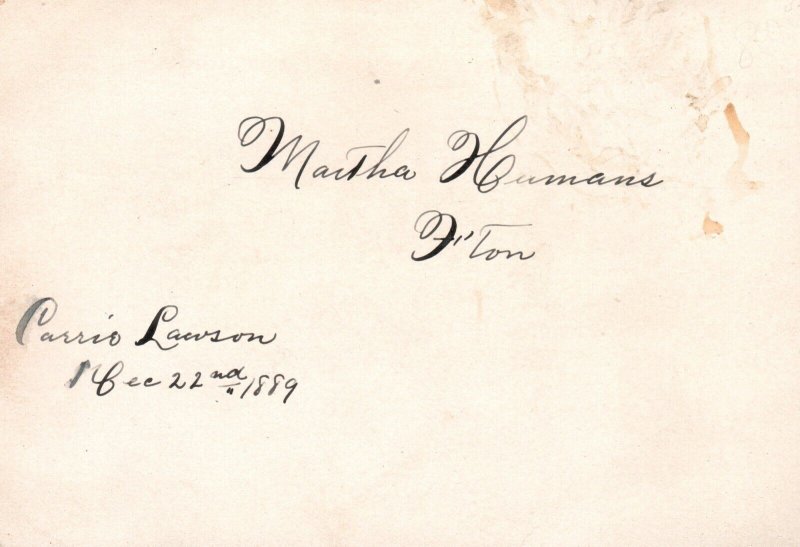 Martha Humans
F"ton
Carrie Lawson
Dec 22nd 1889